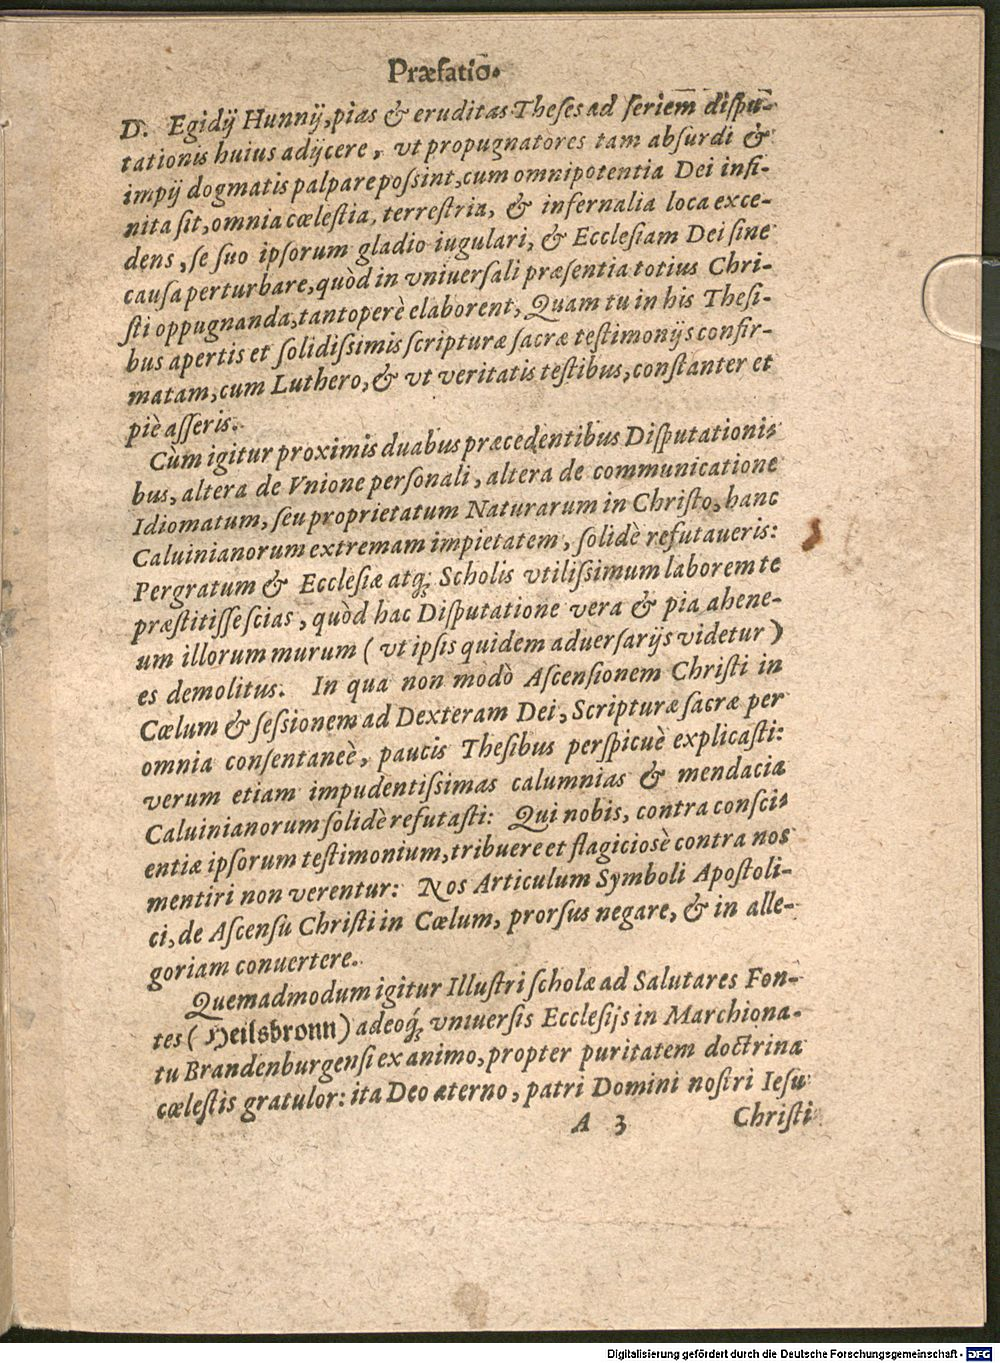 Præfatiō.
D. Egidij Hunnij, pias & eruditas Theses ad seriem̄ dispū-
tationis huius adijcere, vt propugnatores tam absurdi &
impij dogmatis palpare possint, cum omnipotentia Dei infi-
nita sit, omnia cælestia, terrestria, & infernalia loca exce-
dens, se suo ipsorum gladio iugulari, & Ecclesiam Dei sine
causa perturbare, quòd in vniuersali præsentia totius Chri-
sti oppugnanda, tantoperè elaborent, Quam tu in his Thesi-
bus apertis et solidissimis scripturæ sacræ testimonijs confir-
matam, cum Luthero, & vt veritatis testibus, constanter et
piè asseris.
Cùm igitur proximis duabus præcedentibus Disputationi-
bus, altera de Vnione personali, altera de communicatione
Idiomatum, seu proprietatum Naturarum in Christo, hanc
Caluinianorum extremam impietatem, solidè refutaueris:
Pergratum & Ecclesiæ atq́; Scholis vtilissimum laborem te
præstitisse scias, quòd hac Disputatione vera & pia ahene-
um illorum murum ( vt ipsis quidem aduersarijs videtur )
es demolitus. In qua non modò Ascensionem Christi in
Cœlum & sessionem ad Dexteram Dei, Scripturæ sacræ per
omnia consentaneè, paucis Thesibus perspicuè explicasti:
verum etiam impudentissimas calumnias & mendacia
Caluinianorum solidè refutasti: Qui nobis, contra consci-
entiæ ipsorum testimonium, tribuere et flagiciosè contra nos
mentiri non verentur: Nos Articulum Symboli Apostoli-
ci, de Ascensu Christi in Cœlum, prorsus negare, & in alle-
goriam conuertere.
Quemadmodum igitur Illustri scholæ ad Salutares Fon-
tes ( Heilsbronn ) adeoq́; vniuersis Ecclesijs in Marchiona-
tu Brandenburgensi ex animo, propter puritatem doctrinæ
cælestis gratulor: ita Deo æterno, patri Domini nostri Iesu
A 3 Christi
Digitalisierung gefördert durch die Deutsche Forschungsgemeinschaft - DFG